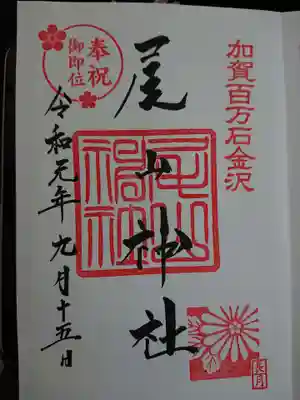 加賀百万石金沢
奉祝
御即位
尾山神社
尾山神社
令和元年九月十五日
長月